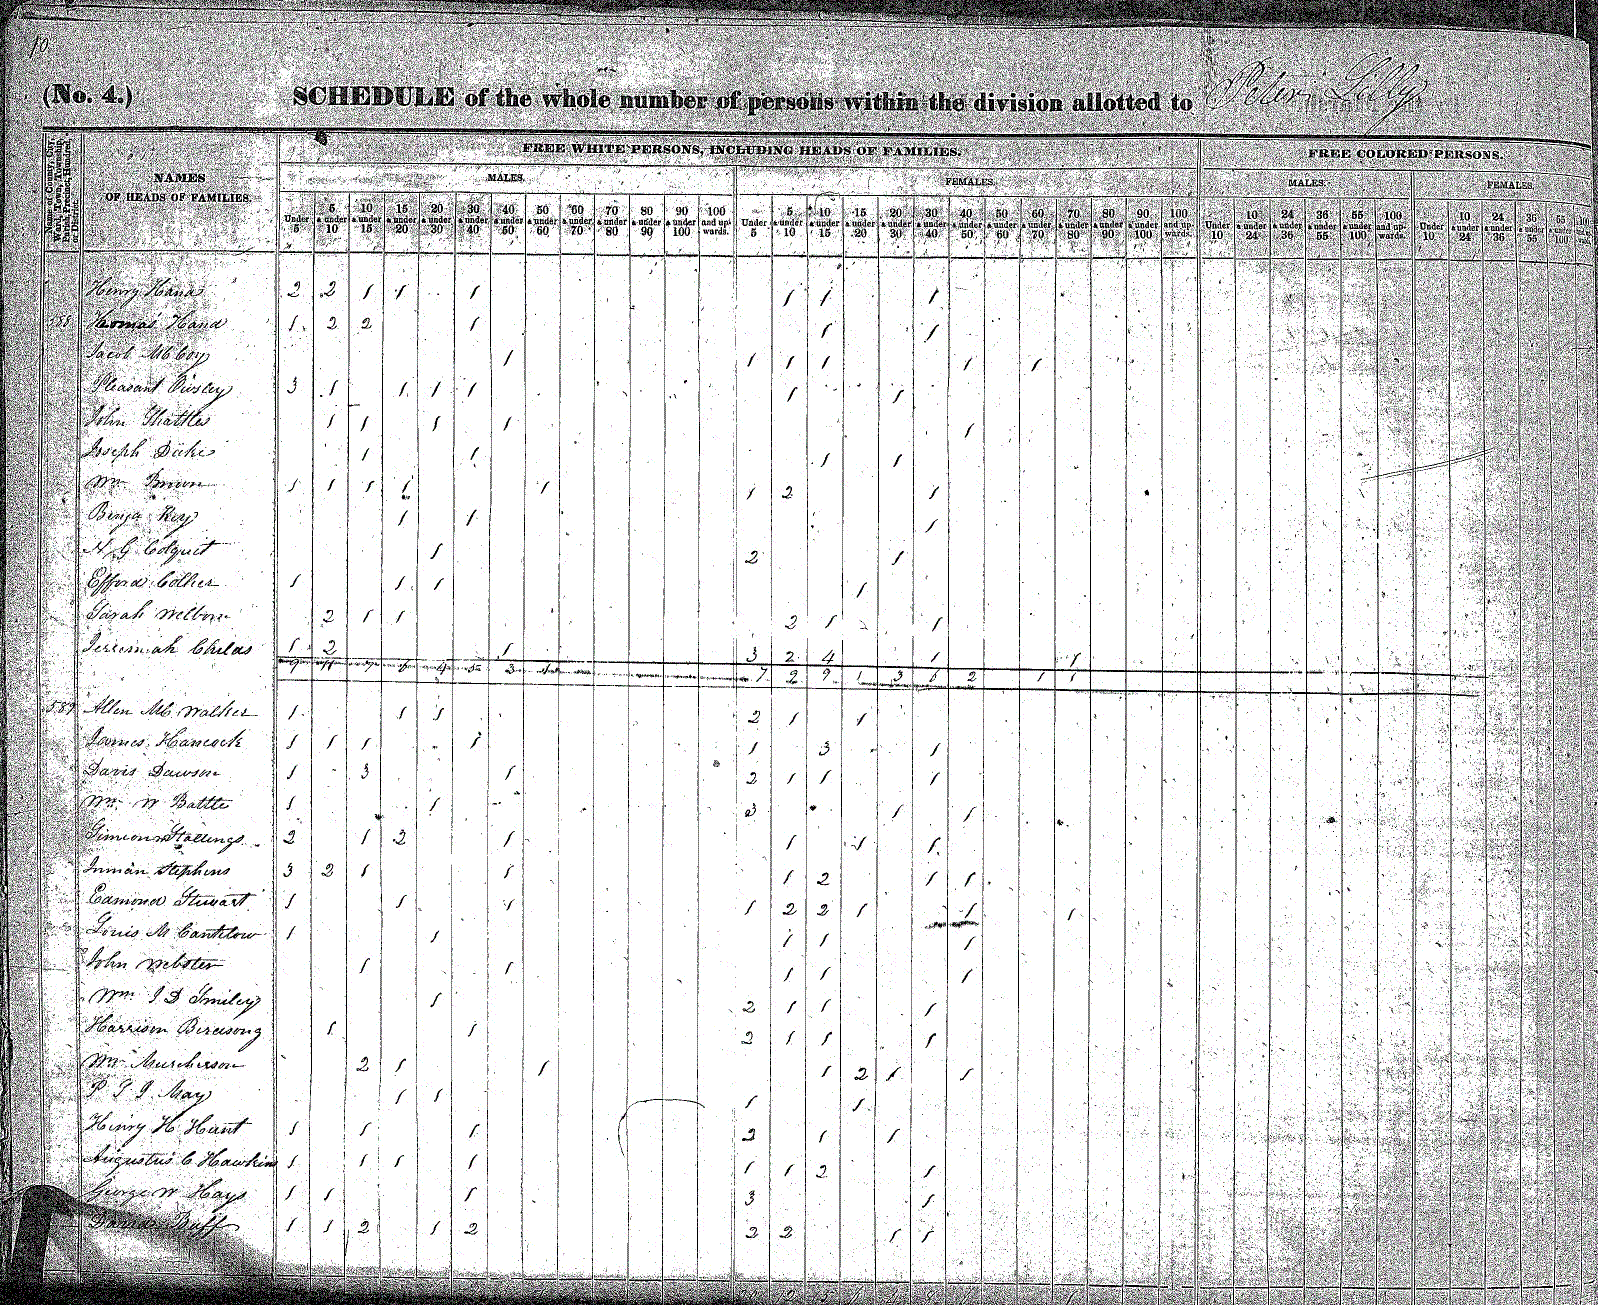 10
(No. 4.) SCHEDULE of the whole number of persons within the division allotted to Peter
Name of County, City, Ward, Town, Township, Parish, Precinct, Hundred, or District.
NAMES OF HEADS OF FAMILIES.
FREE WHITE PERSONS, INCLUDING HEADS OF FAMILIES.
FREE COLORED PERSONS.
MALES. FEMALES. MALES. FEMALES.
Under 5 | 5 & under 10 | 10 & under 15 | 15 & under 20 | 20 & under 30 | 30 & under 40 | 40 & under 50 | 50 & under 60 | 60 & under 70 | 70 & under 80 | 80 & under 90 | 90 & under 100 | 100 and upwards.
Under 5 | 5 & under 10 | 10 & under 15 | 15 & under 20 | 20 & under 30 | 30 & under 40 | 40 & under 50 | 50 & under 60 | 60 & under 70 | 70 & under 80 | 80 & under 90 | 90 & under 100 | 100 and upwards.
Under 10 | 10 & under 24 | 24 & under 36 | 36 & under 55 | 55 & under 100 | 100 and upwards.
Under 10 | 10 & under 24 | 24 & under 36 | 36 & under 55 | 55 & under 100 | 100 and upwards.
Henry Hand 2 2 1 1 1 1 1 1
588 Thomas Hand 1 2 2 1 1 1
Jacob McCoy 1 1 1 1 1 1
Pleasant 3 1 1 1 1 1 1
John 1 1 1 1 1
Joseph 1 1 1 1
Wm Brown 1 1 1 1 1 1 2 1
Benja Key 1 1 1
N G Colquit 1 2 1
Efford 1 1 1 1
Sarah Welborn 2 1 1 2 1 1
Jeremiah Childs 1 2 1 3 2 4 1 1
589 Allen Mc Walker 1 1 1 2 1 1
James Hancock 1 1 1 1 1 3 1
Davis Dawson 1 3 1 2 1 1 1
Wm W Battle 1 1 3 1 1
Simeon Stallings 2 1 2 1 1 1 1
Inman Stephens 3 2 1 1 1 2 1 1
Edmond Stewart 1 1 1 1 2 2 1 1 1
Louis M Cantelow 1 1 1 1 1
John Webster 1 1 1 1 1
Wm J D Smiley 1 2 1 1 1
Harrison 1 1 2 1 1 1
Wm Murcherson 2 1 1 1 2 1 1
P T J May 1 1 1 1
Henry H Hunt 1 1 1 2 1 1
Augustus C Hawkins 1 1 1 1 1 1 2 1
George W Hays 1 1 1 3 1
1 1 2 1 2 2 2 1 1